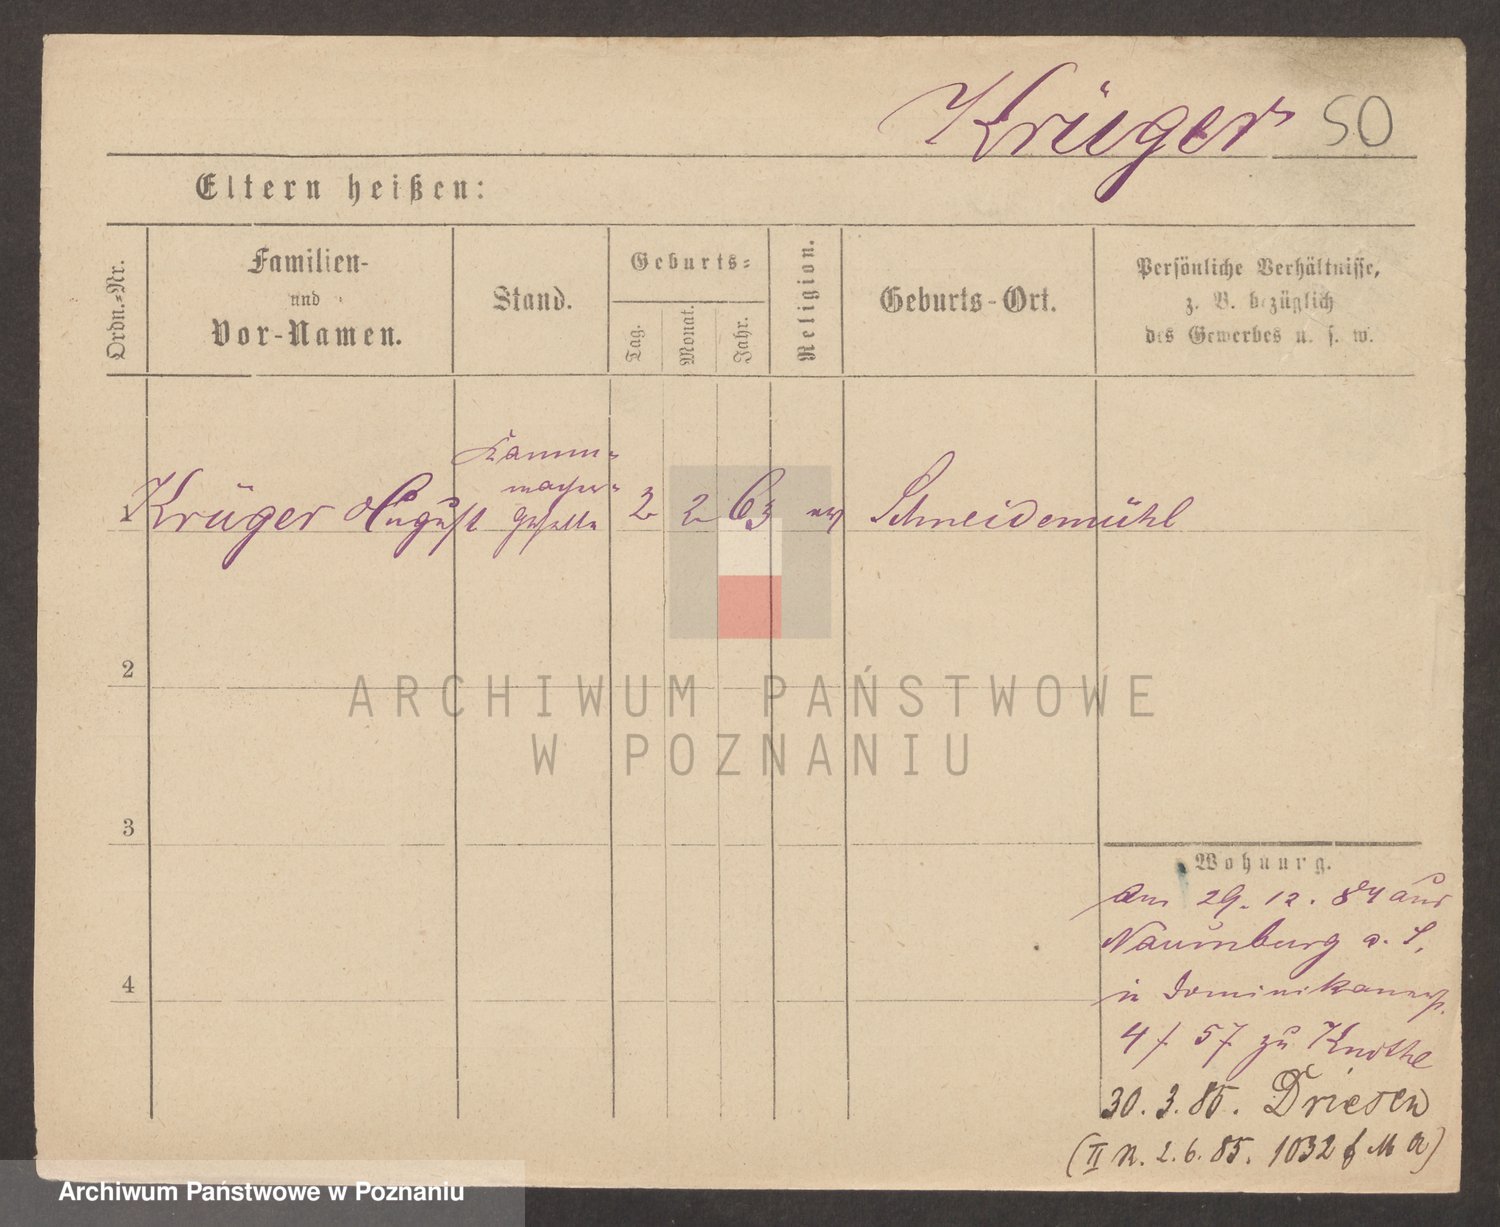 Krüger 50
Eltern heißen:
Ordn.=Nr.
Familien-
und
Vor-Namen.
Stand.
Geburts=
Tag.
Monat.
Jahr.
Religion.
Geburts-Ort.
Persönliche Verhältnisse,
z. B. bezüglich
des Gewerbes u. s. w.
Kamm-
macher-
1 Krüger August Geselle 2 2 63 ev Schneidemühl
2
ARCHIWUM PAŃSTWOWE
W POZNANIU
3
Wohnung.
Am 29. 12. 84 aus
Naumburg a. S.
in Dominikanerst.
4 / 57 zu Knothe
30. 3. 85. Driesen
(II N. 2. 6. 85. 1032 f M A)
4
Archiwum Państwowe w Poznaniu